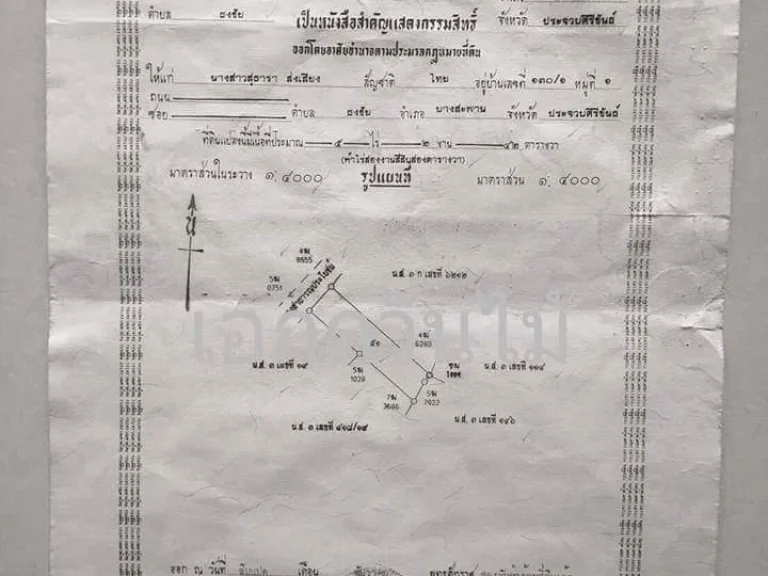 ตำบล ธงชัย เป็นหนังสือสำคัญแสดงกรรมสิทธิ์ จังหวัด ประจวบคีรีขันธ์
ออกโดยอาศัยอำนาจตามประมวลกฎหมายที่ดิน
ให้แก่ นางสาวสุธารา ส่งเสียง สัญชาติ ไทย อยู่บ้านเลขที่ ๑๓๐/๑ หมู่ที่ ๑
ถนน
ซอย ตำบล ธงชัย อำเภอ บางสะพาน จังหวัด ประจวบคีรีขันธ์
ที่ดินแปลงนี้มีเนื้อที่ประมาณ ๕ ไร่ ๒ งาน ๔๒ ตารางวา
(ห้าไร่สองงานสี่สิบสองตารางวา)
มาตราส่วนในระวาง ๑: ๔๐๐๐ รูปแผนที่ มาตราส่วน ๑: ๔๐๐๐
น
4ฆ
8855
5ฆ
0751
ทางสาธารณประโยชน์
น.ส. ๓ ก เลขที่ ๖๒๑๒
เอกวรรณไม้
4ฆ
6280
๕๑
น.ส. ๓ เลขที่ ๑๙
5ฆ
1028
น.ส. ๓ เลขที่ ๑๑๔
7ฆ
3686
5ฆ
7922
น.ส. ๓ เลขที่ ๑๔๖
น.ส. ๓ เลขที่ ๔๑๘/๑๙
ออก ณ วันที่ เดือน พุทธศักราช